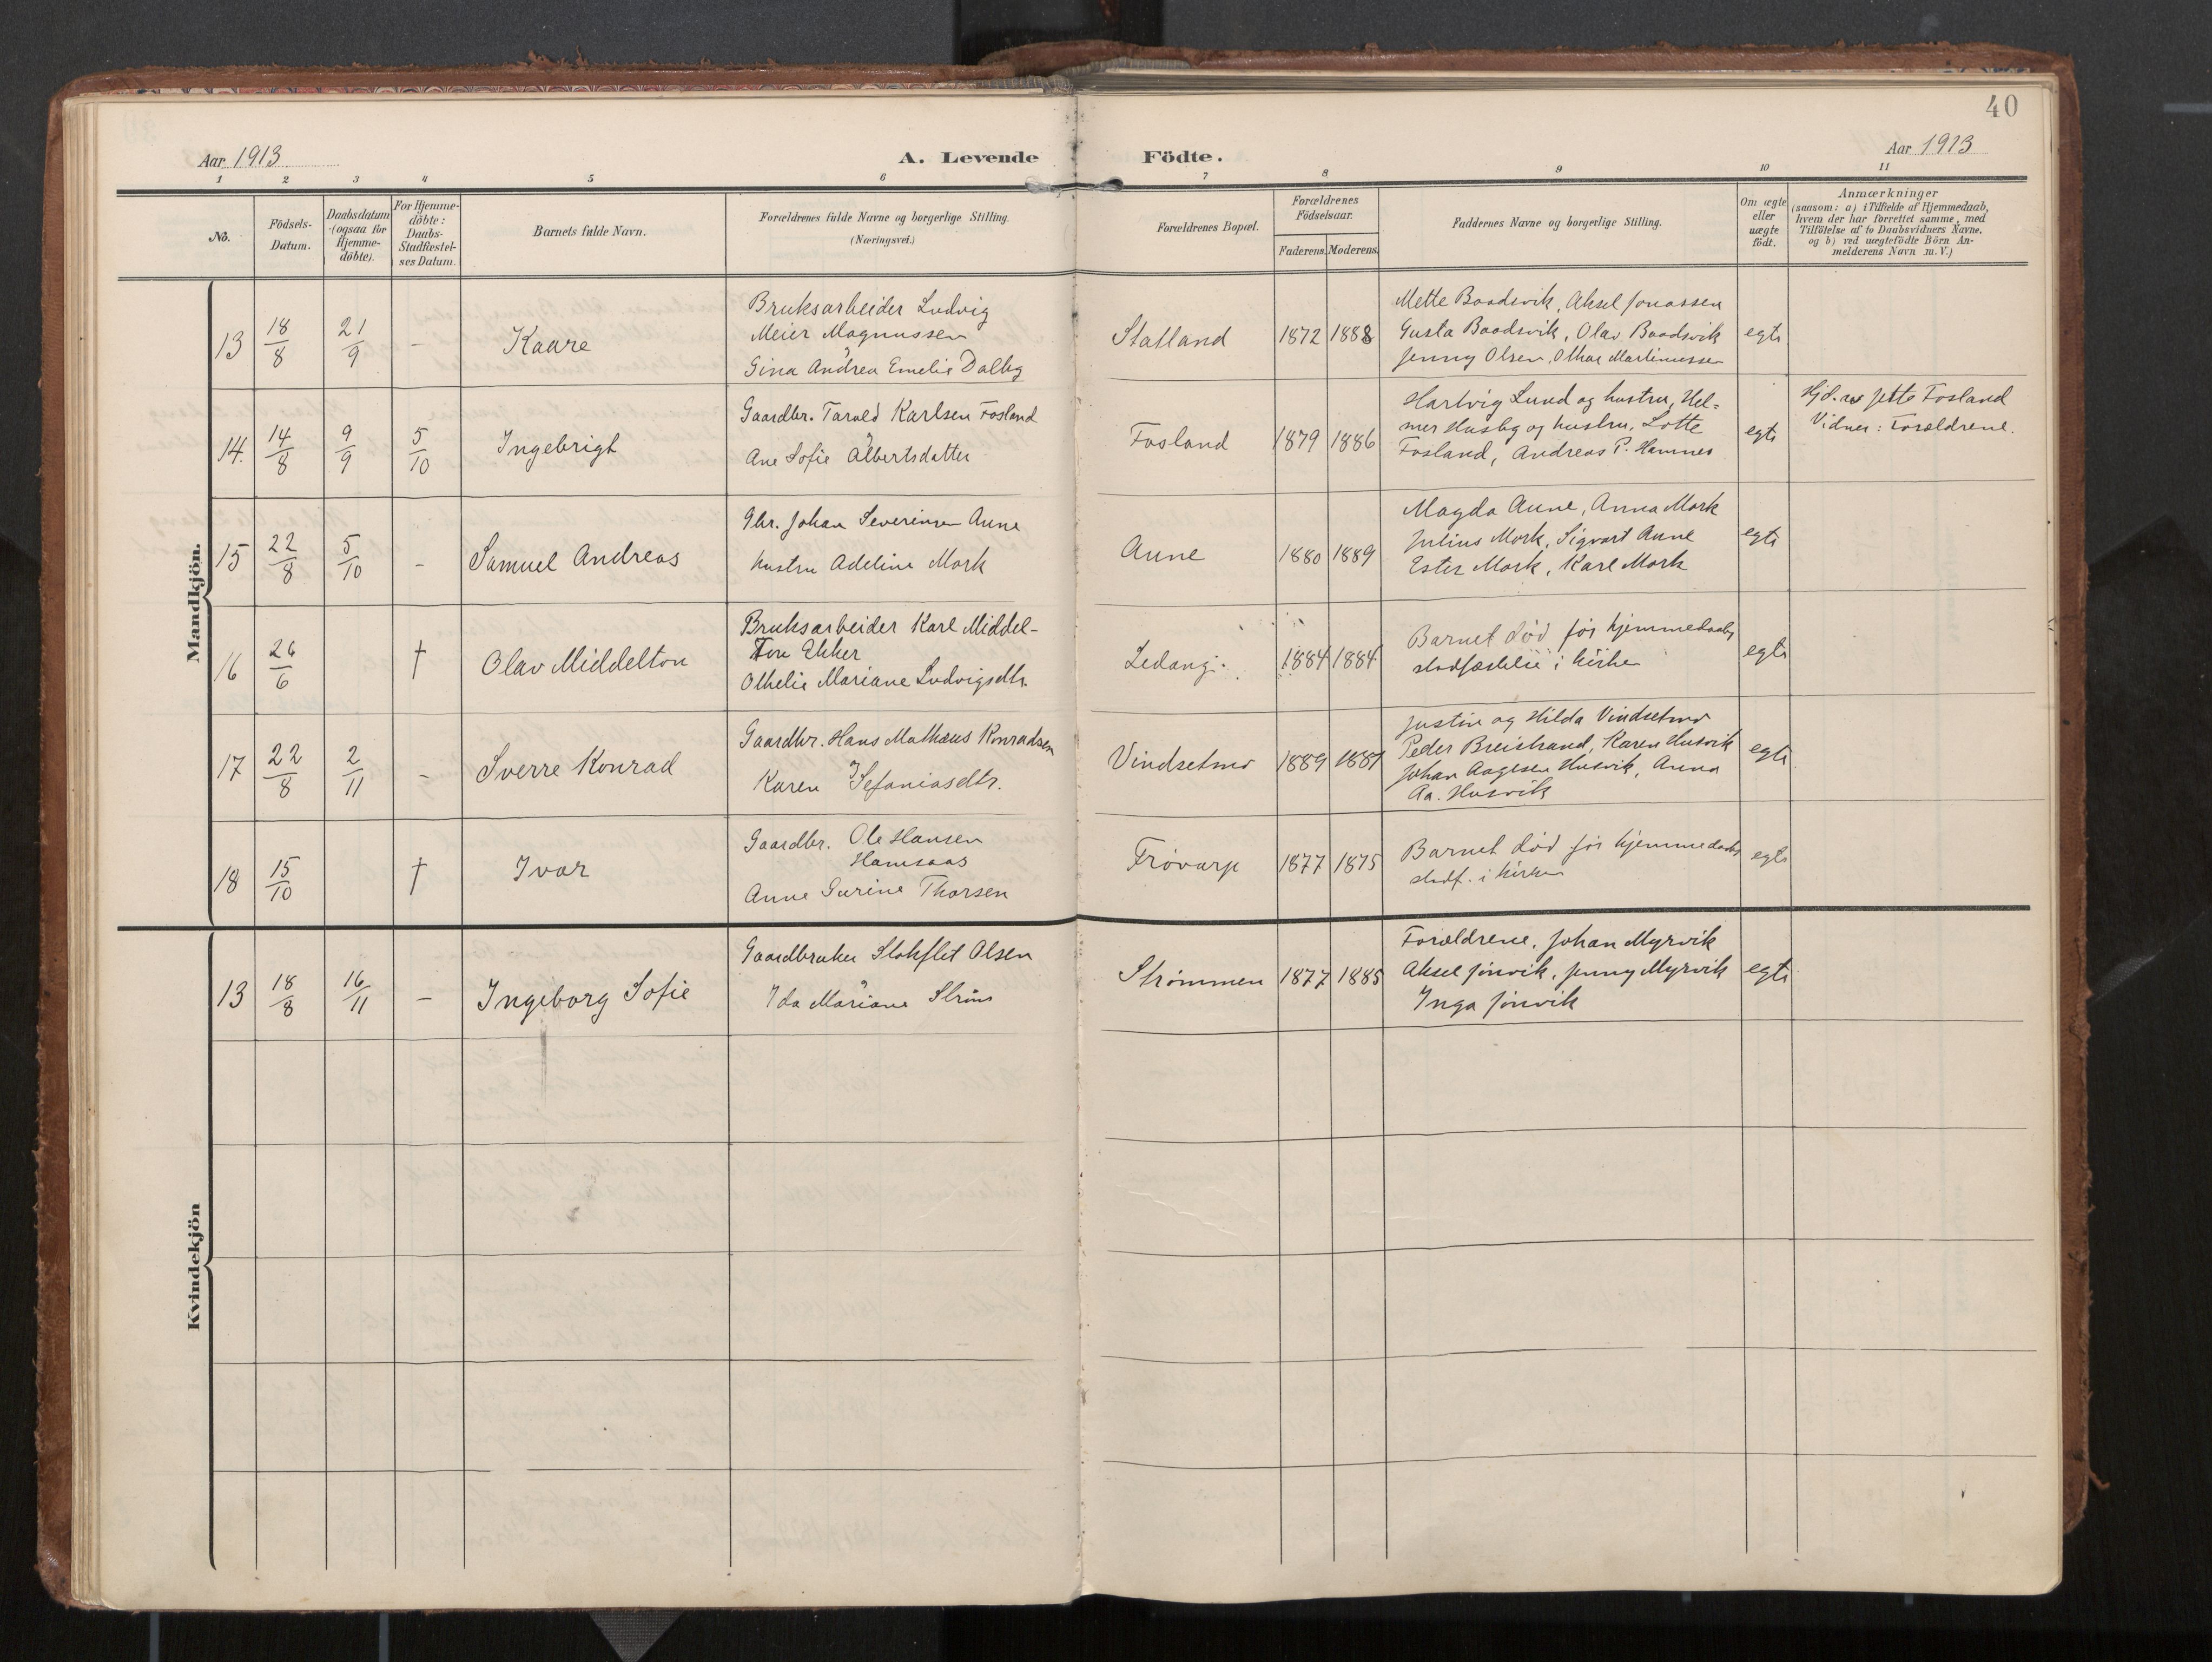 40
Aar 1913
A. Levende Födte.
Aar 1913
1 2 3 4 5 6 7 8 9 10 11
No.
Födsels-
Datum.
Daabsdatum
(ogsaa for
Hjemme-
döbte).
For Hjemme-
döbte:
Daabs-
Stadfæstel-
ses Datum.
Barnets fulde Navn.
Forældrenes fulde Navne og borgerlige Stilling.
(Næringsvei.)
Forældrenes Bopæl.
Forældrenes
Födselsaar.
Faderens. Moderens.
Faddernes Navne og borgerlige Stilling.
Om ægte
eller
uægte
födt.
Anmærkninger
(saasom: a) i Tilfælde af Hjemmedaab,
hvem der har forrettet samme, med
Tilföielse af to Daabsvidners Navne,
og b) ved uægtefödte Börn An-
melderens Navn m. V.)
Mandkjön.
13 18/8 21/9 - Kaare
Bruksarbeider Ludvig
Meier Magnussen
Gina Andrea Emelie Dalbg
Statland 1872 1888
Mette Baadsvik, Aksel Jonassen
Gusta Baadsvik, Olav Baadsvik
Jenny Olsen, Othar Martinussen
egte
14. 14/8 9/9 5/10 Ingebrigt
Gaardbr. Tarald Karlsen Fosland
Ane Sofie Albertsdatter
Fosland 1879 1886
Hartvig Lund og hustru, Hel=
mer Husby og hustru, Lotte
Fosland, Andreas P. Hamnes
egte
Hjd. av Jette Fosland
Vidner: Forældrene.
15 22/8 5/10 - Samuel Andreas
Gbr. Johan Severinsen Aune
hustru Adeline Mork
Aune 1880 1889
Magda Aune, Anna Mork
Julius Mork, Sigvart Aune
Ester Mork, Karl Mork
egte
16 26/6 † Olav Middelton
Bruksarbeider Karl Middel-
Ekker
Othelie Mariane Ludvigsdtr.
Ledang 1884 1884
Barnet död för hjemmedaabs
stadfæstelse i kirken
egte
17 22/8 2/11 - Sverre Konrad
Gaardbr. Hans Mathæus Konradsen
Karen Sefaniasdtr.
Vindsetmo 1889 1887
Justin og Hilda Vindsetmo
Peder Breistrand, Karen Husvik
Johan Aagesen Husvik, Anna
Aa. Husvik
egte
18 15/10 † Ivar
Gaardbr. Ole Hansen
Hamsaas
Anne Gurine Thorsen
Frövarp 1877 1875
Barnet död för hjemmedaabs
stadf. i kirken
egte
Kvindekjön
13 18/8 16/11 - Ingeborg Sofie
Gaardbruker Stokflet Olsen
Ida Mariane Ströms
Strömmen 1877 1885
Forældrene, Johan Myrvik
Aksel Jönvik, Jenny Myrvik
Inga Jönvik
egte